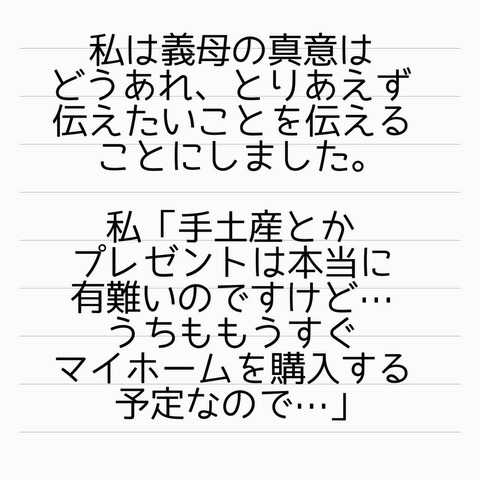 私は義母の真意は
どうあれ、とりあえず
伝えたいことを伝える
ことにしました。
私「手土産とか
プレゼントは本当に
有難いのですけど…
うちももうすぐ
マイホームを購入する
予定なので…」